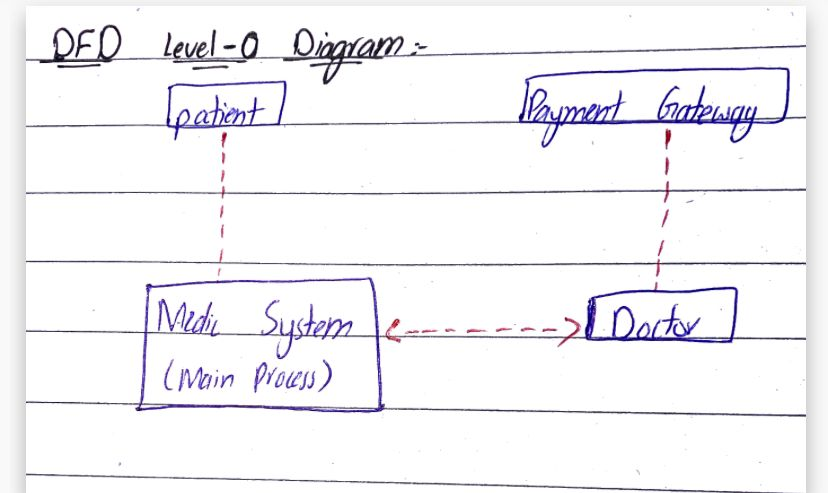 DFD Level-0 Diagram :-
patient
Payment Gateway
Medic System
(Main Process)
Doctor